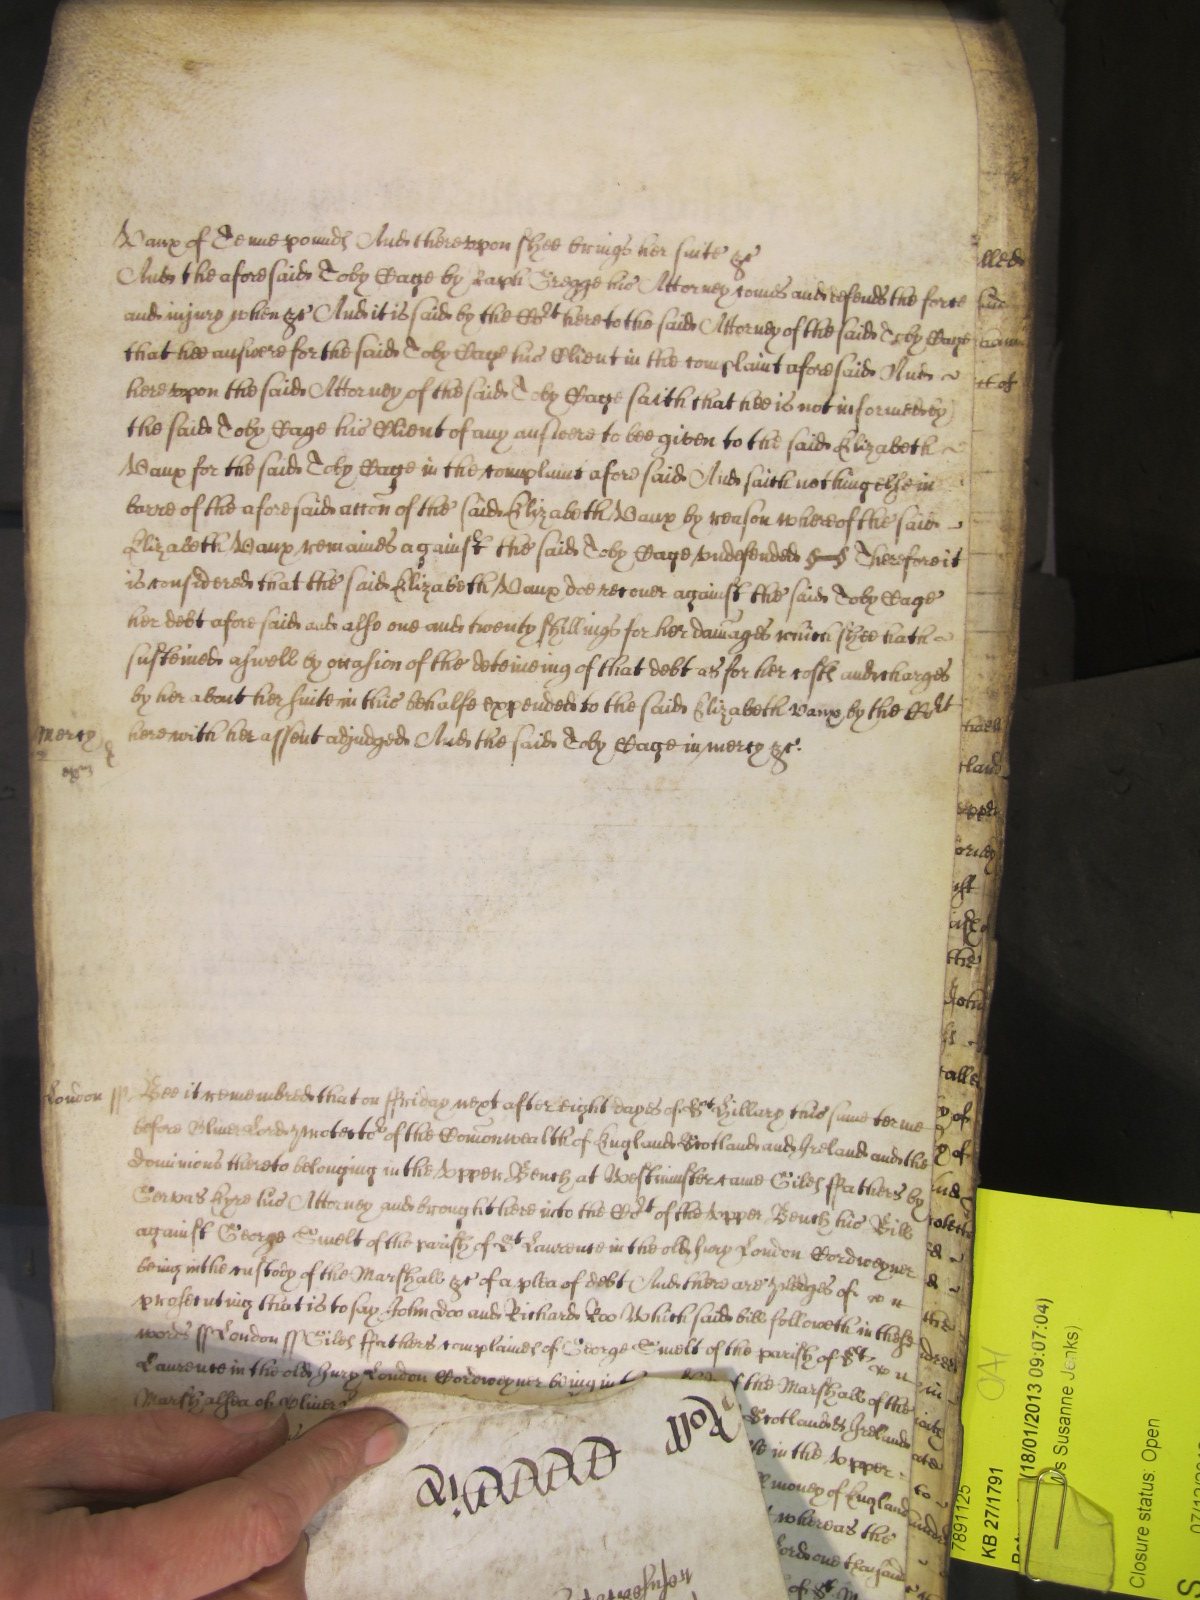 Vaux of Tenne pounds And thereupon shee brings her suite &c
And the aforesaid Toby Cage by Raph Gregge his Attorney comes and defends the force
and injury when &c And it is said by the Cort here to the said Attorney of the said Toby Cage
that hee answere for the said Toby Cage his Client in the complaint aforesaid And
hereupon the said Attorney of the said Toby Cage saith that hee is not informed by
the said Toby Cage his Client of any answere to bee given to the said Elizabeth
Vaux for the said Toby Cage in the complaint aforesaid And saith nothing else in
barre of the aforesaid accon of the said Elizabeth Vaux by reason whereof the said
Elizabeth Vaux remaines against the said Toby Cage undefended Therefore it
is considered that the said Elizabeth Vaux doe recover against the said Toby Cage
her debt aforesaid and also one and twenty shillings for her damages which shee hath
susteined aswell by occasion of the deteineing of that debt as for her costs and charges
by her about her suite in this behalfe expended to the said Elizabeth Vaux by the Cort
Mercy here with her assent adjudged And the said Toby Cage in mercy &c
London ss Bee it remembred that on ffriday next after eight dayes of St Hillary this same terme
before Oliver Lord Protector of the Comonwealth of England Scotland and Ireland and the
dominions thereto belonging in the Upper Bench at Westminster came Giles ffathers by
Gervas Eyre his Attorney and brought here into the Cort of the Upper Bench his Bill
against George Smelt of the parish of St Laurence in the old Jury London Cordweyner
being in the custody of the Marshall &c of a plea of debt And there are pledges of
prosecuting that is to say John Doo and Richard Roo Which said bill followeth in these
words ss London ss Giles ffathers complaines of George Smelt of the parish of St
Laurence in the old Jury London Cordweyner being in the Marshall of the
Marshalsea of Oliver Scotland & Ireland
in the Upper
money of England
whereas the
one thousand
of St M
Roll
7891125
KB 27/1791
(18/01/2013 09:07:04)
s Susanne Jenks)
Closure status: Open